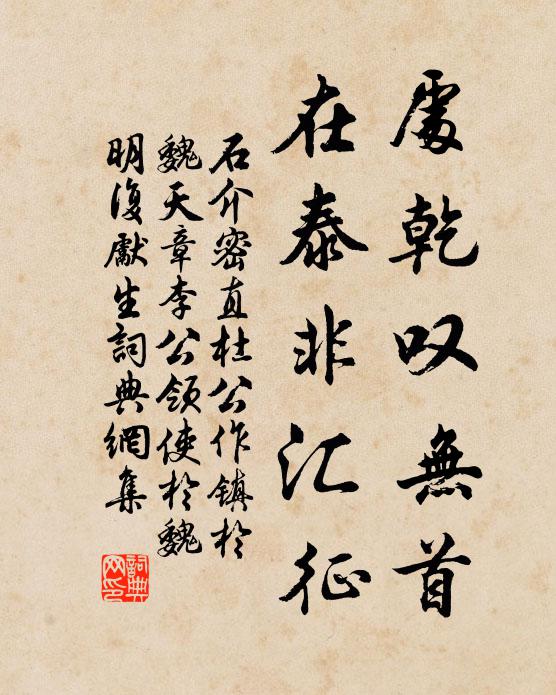 處乾叹無首
在泰非汇征
石介密直杜公作镇於
魏天章李公领使於魏
明復獻生詞典網集
詞典网印